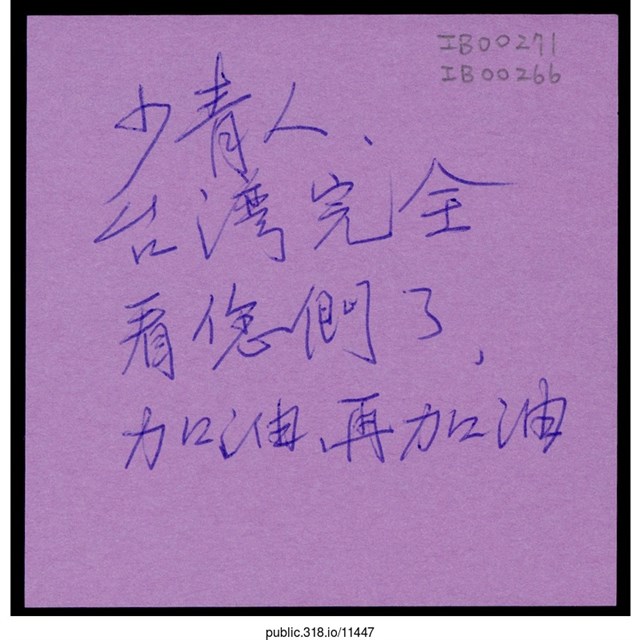 IB00271
IB00266
少青人、
台湾完全
看您們了,
加油、再加油
public.318.io/11447